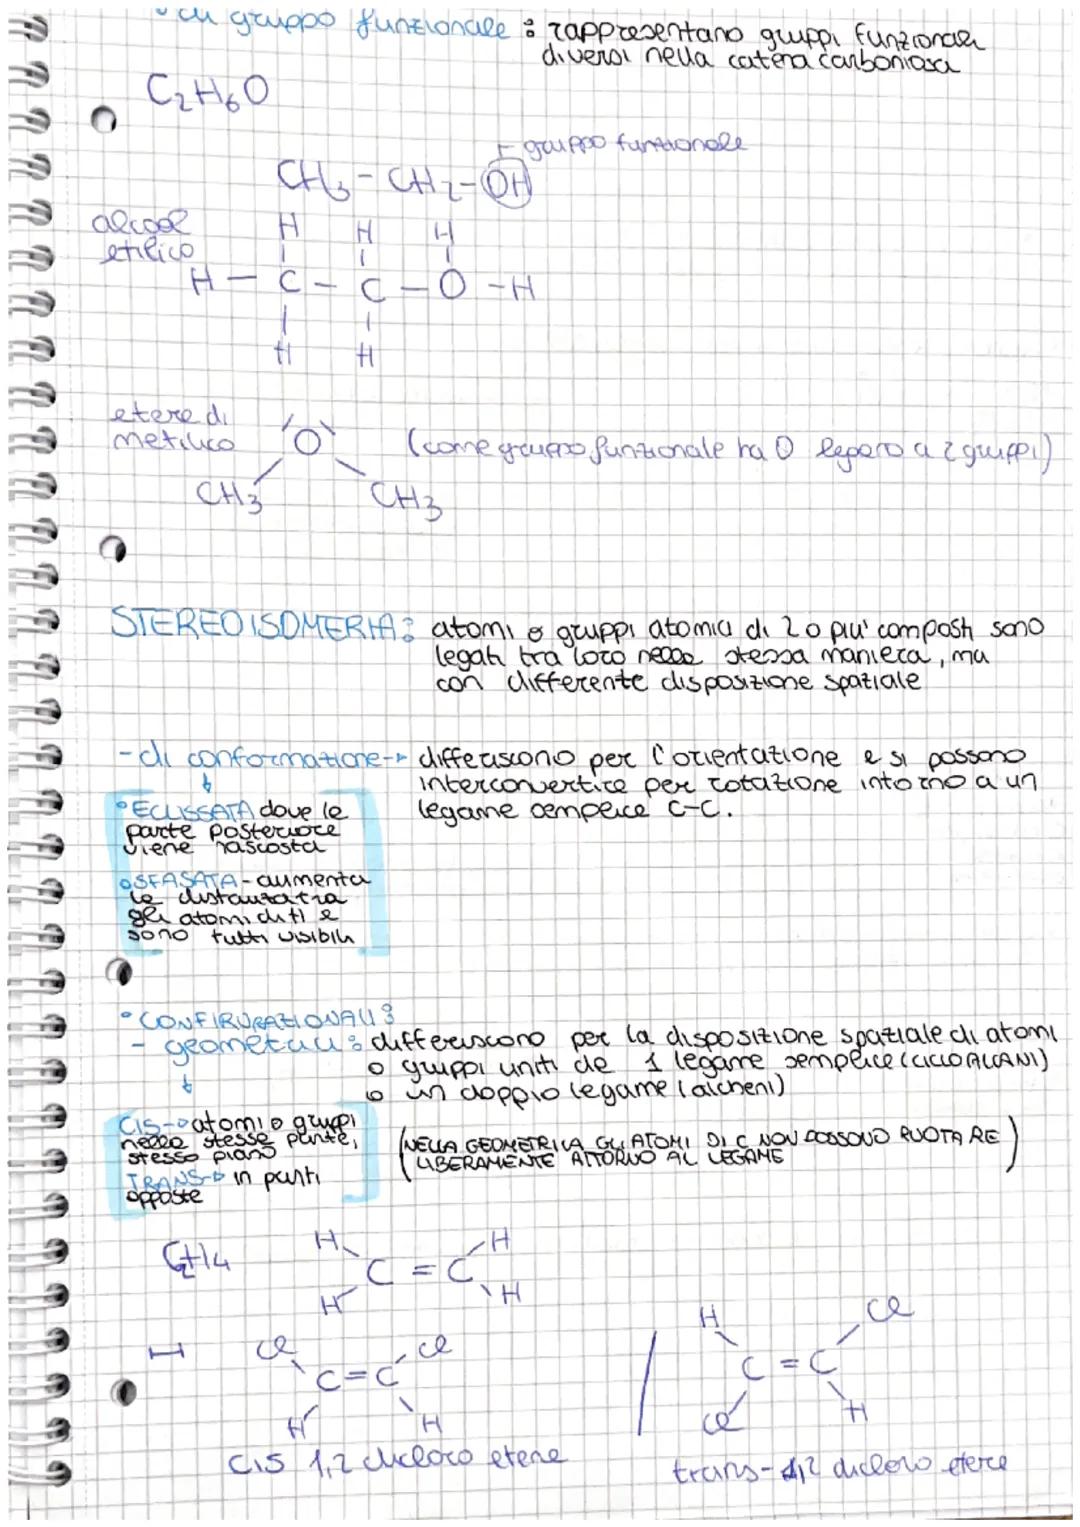 di gruppo funzionale : rappresentano gruppi funzionali
diversi nella catena carboniosa
C2H6O
gruppo funzionale
CH3 - CH2 - OH
alcool
etilico
H H H
H - C - C - O - H
H H
etere di
metilico
O
(come gruppo funzionale ha O legato a 2 gruppi)
CH3 CH3
STEREOISOMERIA: atomi o gruppi atomici di 2 o più composti sono
legati tra loro nella stessa maniera, ma
con differente disposizione spaziale
- di conformazione → differiscono per l'orientazione e si possono
interconvertire per rotazione intorno a un
legame semplice C-C.
• ECLISSATA dove la
parte posteriore
viene nascosta
• SFASATA - aumenta
la distanza tra
gli atomi di H e
sono tutti visibili
• CONFIRURAZIONALI:
- geometrici: differiscono per la disposizione spaziale di atomi
o gruppi uniti da 1 legame semplice (CICLOALCANI)
o un doppio legame (alcheni)
CIS → atomi o gruppi
nella stessa parte,
stesso piano
TRANS → in parti
opposte
(NELLA GEOMETRICA GLI ATOMI DI C NON POSSONO RUOTARE
LIBERAMENTE ATTORNO AL LEGAME)
C2H4
H H
C = C
H H
Cl Cl
C = C
H H
cis 1,2 dicloro etene
/
H Cl
C = C
Cl H
trans-1,2 dicloro etere